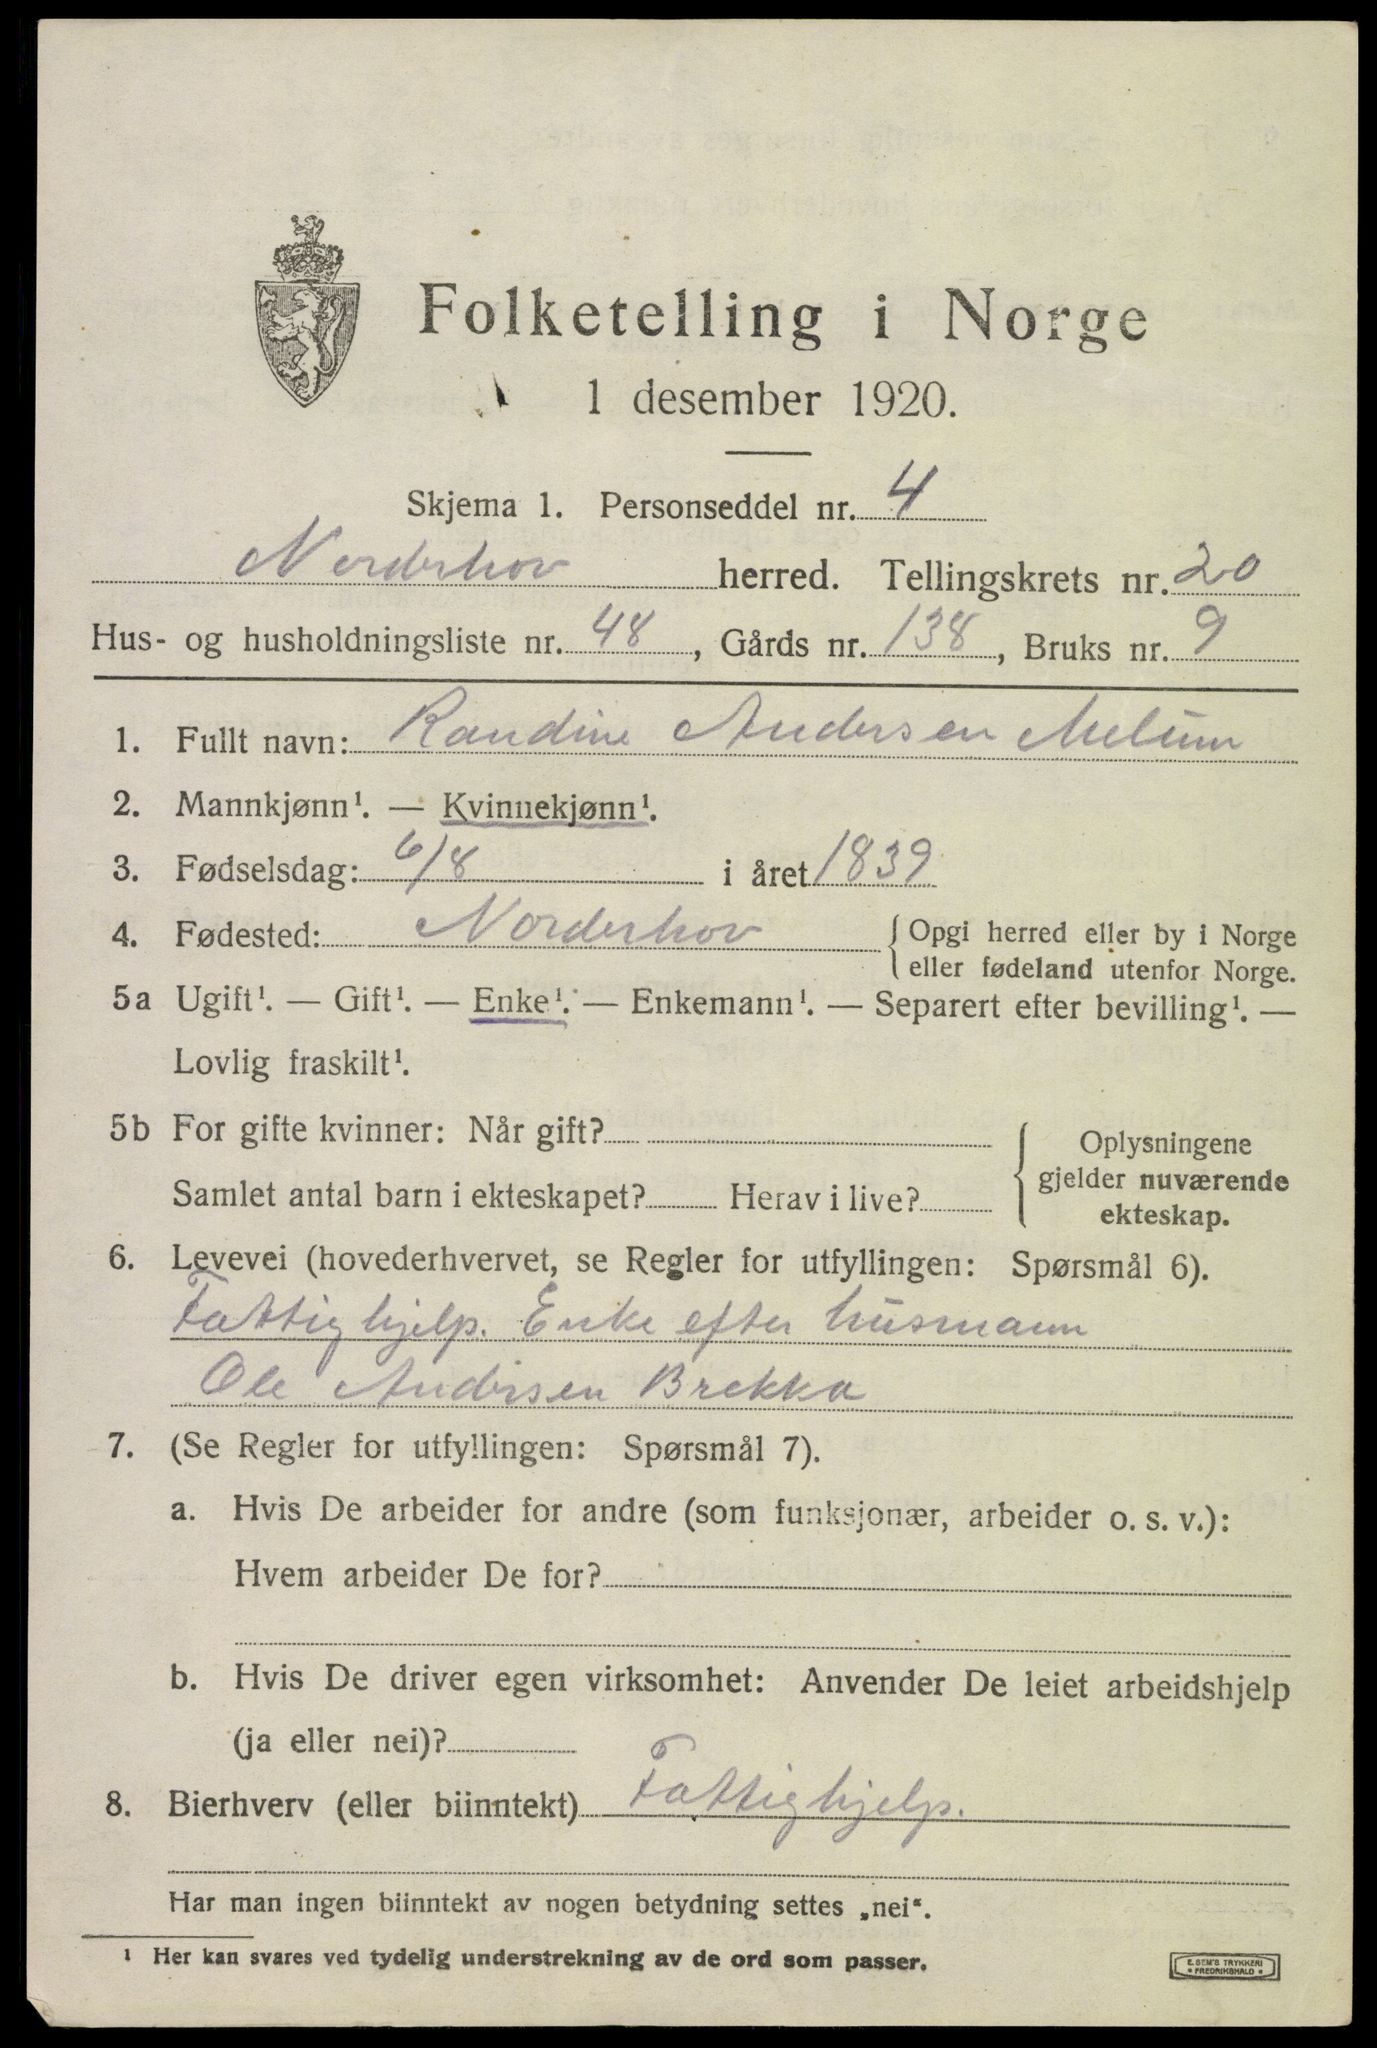 Folketelling i Norge
1 desember 1920.
Skjema 1. Personseddel nr. 4
Norderhov herred. Tellingskrets nr. 20
Hus- og husholdningsliste nr. 48, Gårds nr. 138, Bruks nr. 9
1. Fullt navn: Randine Andersen Melum
2. Mannkjønn¹. — Kvinnekjønn¹.
3. Fødselsdag: 6/8 i året 1839
4. Fødested: Norderhov { Opgi herred eller by i Norge
eller fødeland utenfor Norge.
5a Ugift¹. — Gift¹. — Enke¹. — Enkemann¹. — Separert efter bevilling¹. —
Lovlig fraskilt¹.
5b For gifte kvinner: Når gift?
Samlet antal barn i ekteskapet? Herav i live?
{ Oplysningene
gjelder nuværende
ekteskap.
6. Levevei (hovederhvervet, se Regler for utfyllingen: Spørsmål 6).
Fattighjelp. Enke efter husmann
Ole Andersen Brekka
7. (Se Regler for utfyllingen: Spørsmål 7).
a. Hvis De arbeider for andre (som funksjonær, arbeider o. s. v.):
Hvem arbeider De for?
b. Hvis De driver egen virksomhet: Anvender De leiet arbeidshjelp
(ja eller nei)?
8. Bierhverv (eller biinntekt) Fattighjelp.
Har man ingen biinntekt av nogen betydning settes „nei“.
¹ Her kan svares ved tydelig understrekning av de ord som passer.
E. SEM'S TRYKKERI
* FREDRIKSHALD *